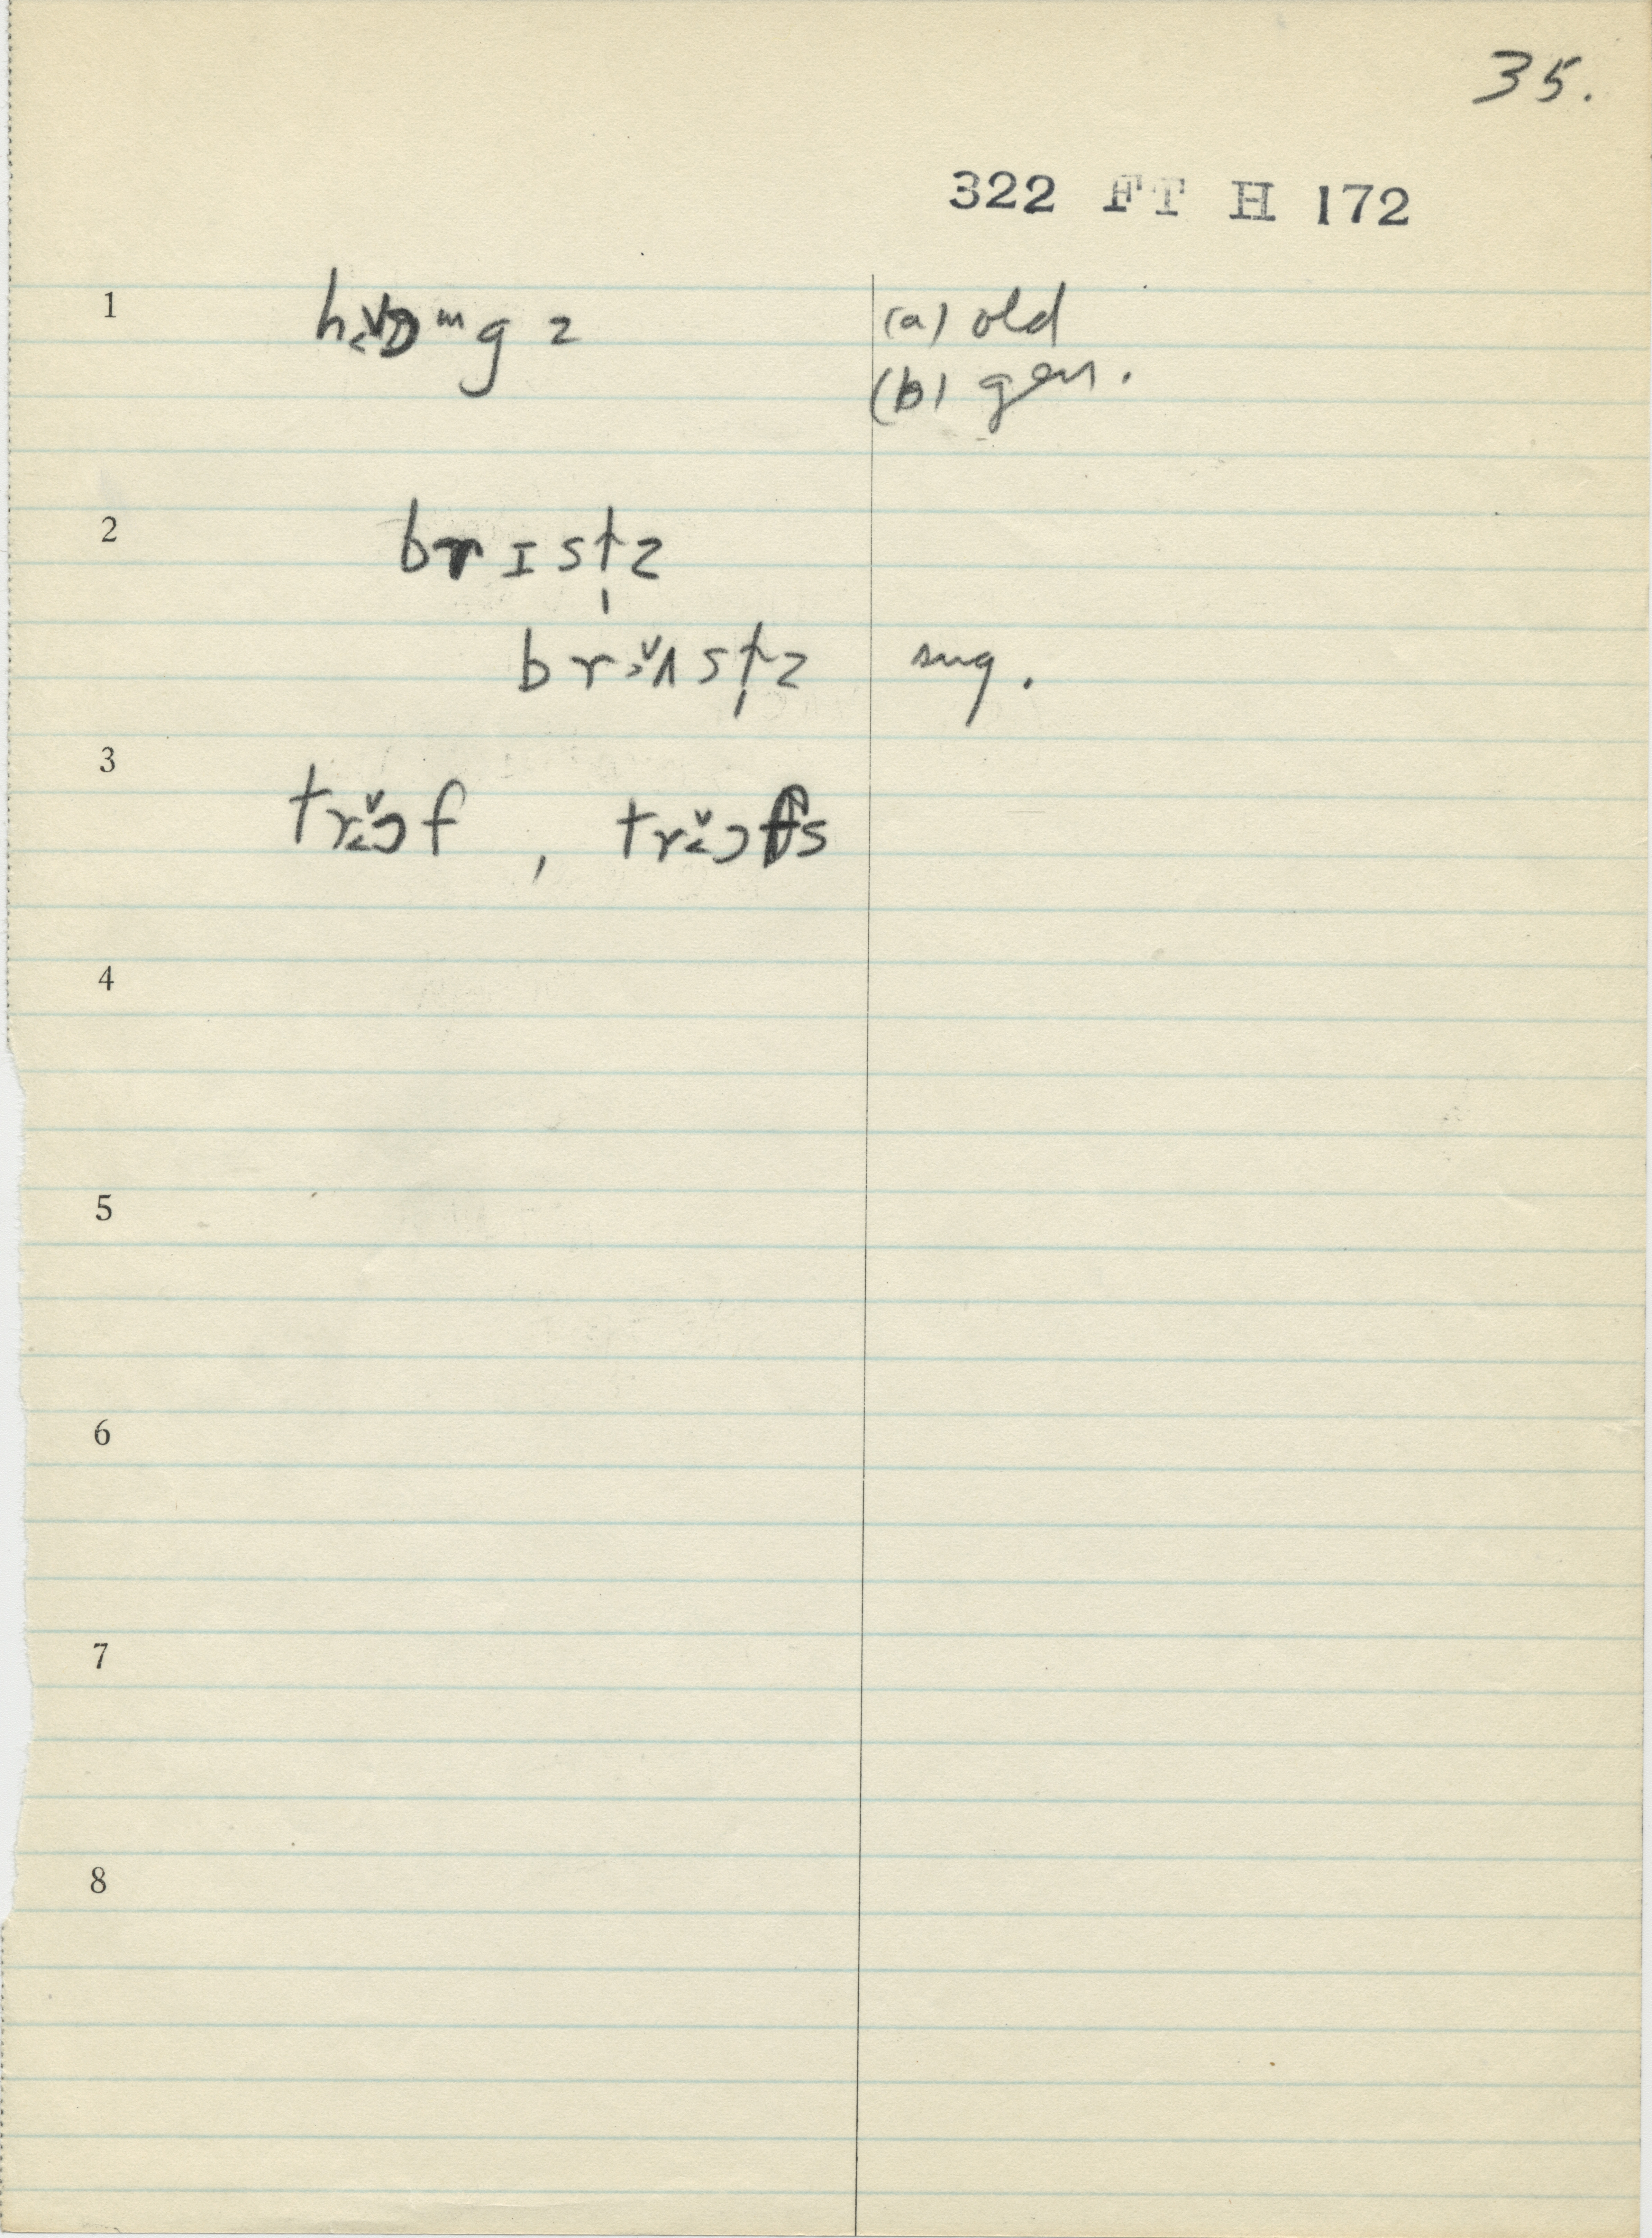 35.
322 FT H 172
1 hɒ̬˂ᵐgz (a) old
(b) gen.
2 brɪstz
brʌ̬˃stz sug.
3 trɔ̬˂f, trɔ̬˂fs
4
5
6
7
8